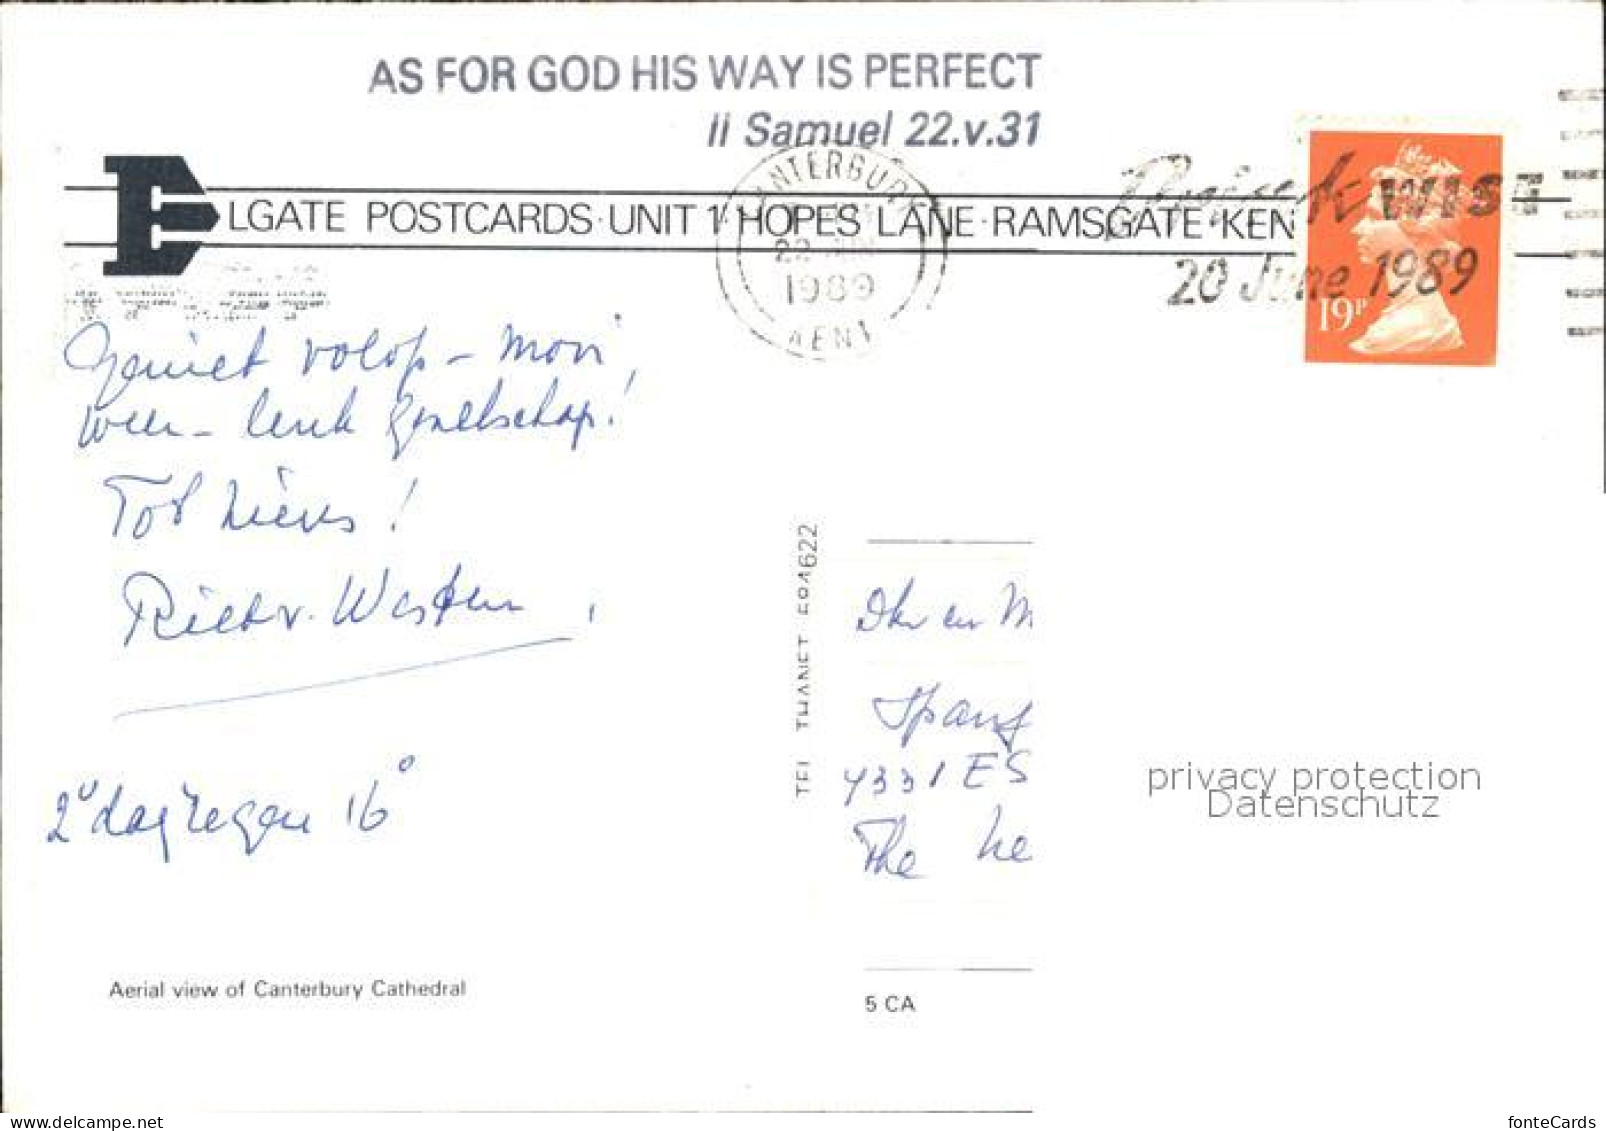 AS FOR GOD HIS WAY IS PERFECT
II Samuel 22.v.31
CANTERBURY
22 JUN
1989
KENT
WISE
20 June 1989
19P
ELGATE POSTCARDS·UNIT 1 HOPES LANE·RAMSGATE·KEN
Geniet volop - mooi
weer - leuk gezelschap!
Tot ziens!
Riet v. Westen
2e dag regen 16°
TEL THANET 591622
Dhr en M
Spanj
4331 ES
The Ne
privacy protection
Datenschutz
Aerial view of Canterbury Cathedral
5 CA
fonteCards